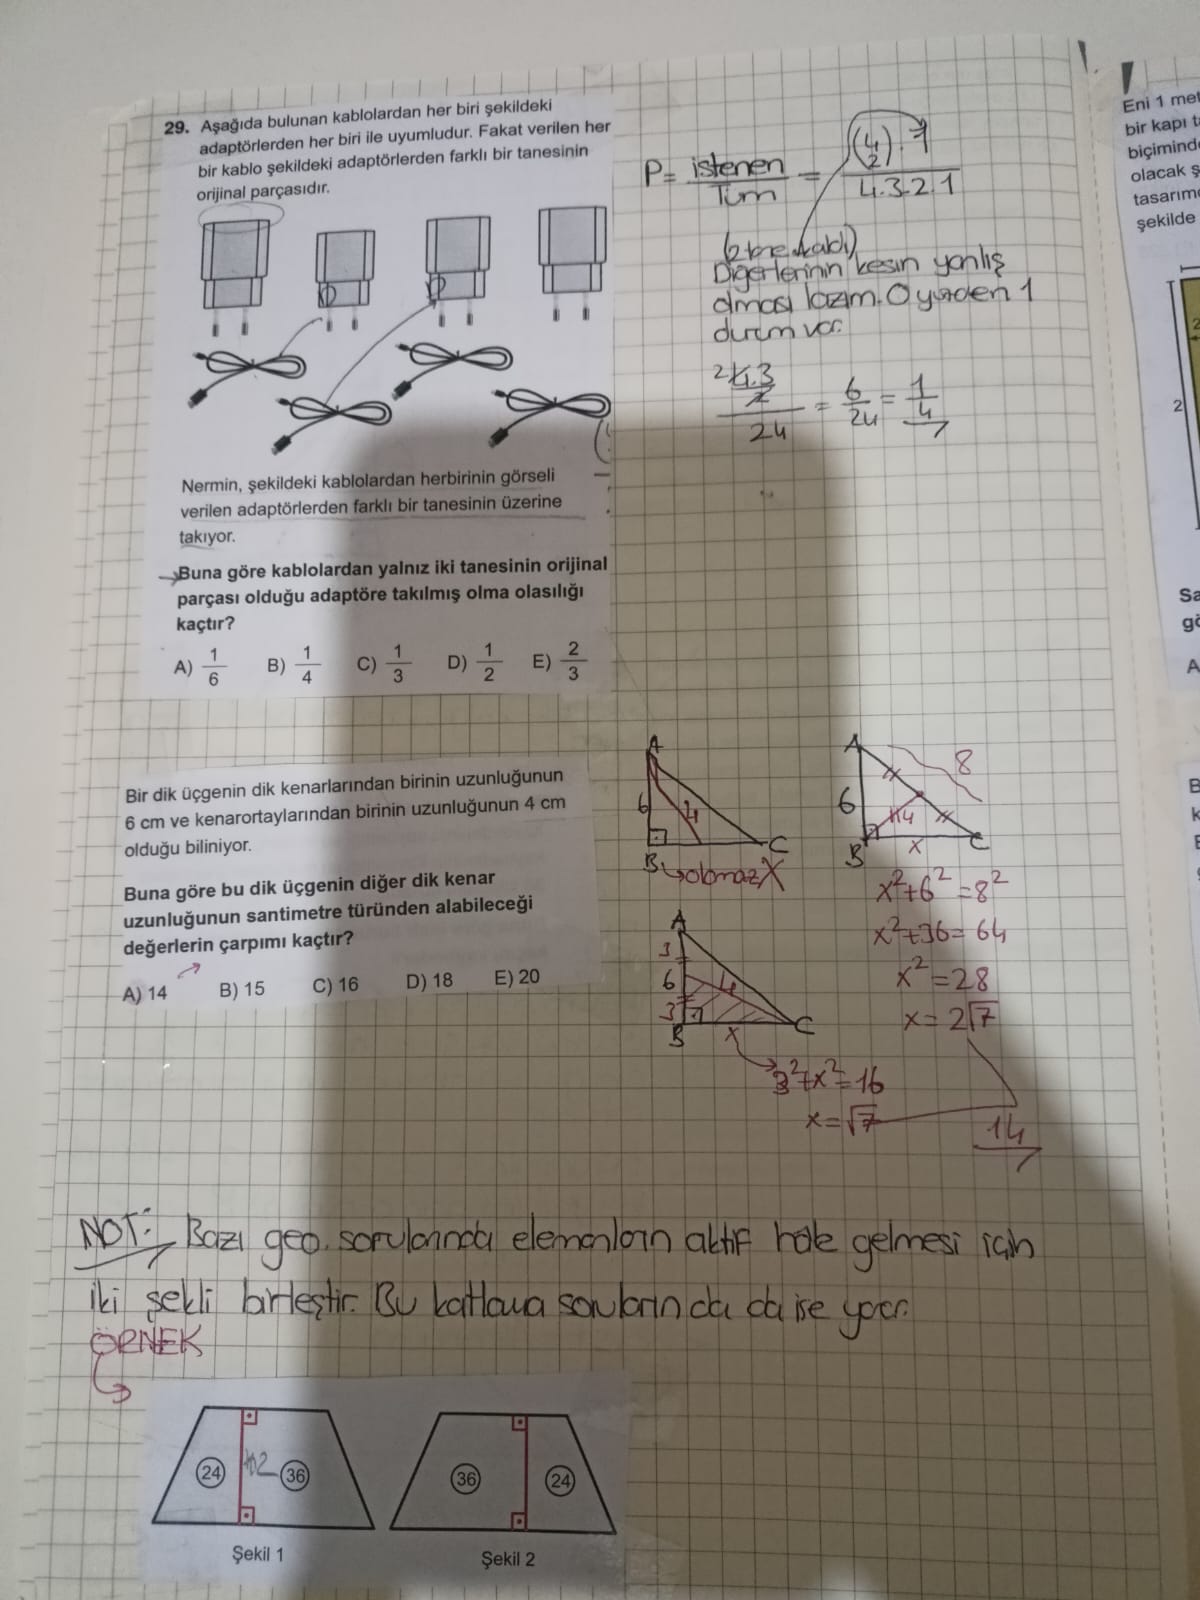 29. Aşağıda bulunan kablolardan her biri şekildeki
adaptörlerden her biri ile uyumludur. Fakat verilen her
bir kablo şekildeki adaptörlerden farklı bir tanesinin
orijinal parçasıdır.
Nermin, şekildeki kablolardan herbirinin görseli
verilen adaptörlerden farklı bir tanesinin üzerine
takıyor.
Buna göre kablolardan yalnız iki tanesinin orijinal
parçası olduğu adaptöre takılmış olma olasılığı
kaçtır?
A) 1/6 B) 1/4 C) 1/3 D) 1/2 E) 2/3
P = istenen / Tüm = (4 2) . 1 / 4.3.2.1
(2 tane kaldı)
Diğerlerinin kesin yanlış
olması lazım. O yüzden 1
durum var.
2 4.3 / 2
/ 24 = 6/24 = 1/4
Bir dik üçgenin dik kenarlarından birinin uzunluğunun
6 cm ve kenarortaylarından birinin uzunluğunun 4 cm
olduğu biliniyor.
Buna göre bu dik üçgenin diğer dik kenar
uzunluğunun santimetre türünden alabileceği
değerlerin çarpımı kaçtır?
A) 14 B) 15 C) 16 D) 18 E) 20
A
6
4
B
C
olmaz X
A
8
6
4
B
x
C
x²+6²=8²
x²+36=64
x²=28
x=2√7
A
3
6
4
3
B
x
C
3²+x²=16
x=√7
14
NOT: Bazı geo. sorularında elemanların aktif hale gelmesi için
iki şekli birleştir. Bu katlama sorularında da işe yarar.
ÖRNEK
24
36
Şekil 1
36
24
Şekil 2
Eni 1 met
bir kapı ta
biçiminde
olacak ş
şekilde
2
2
Sa
gö
A
B